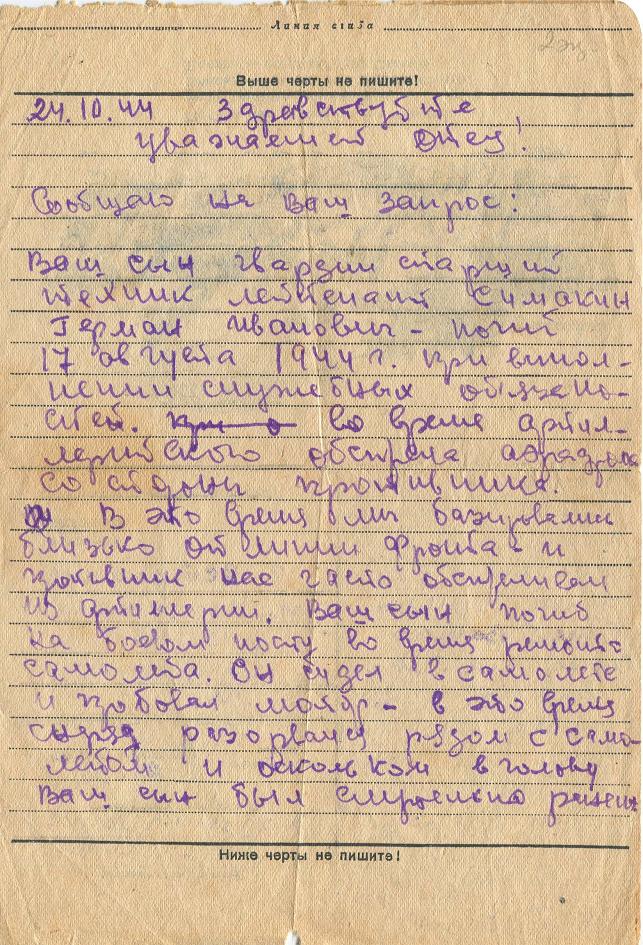 Линия сгиба
2 эк.
Выше черты не пишите!
24.10.44 Здравствуйте
уважаемый отец!
Сообщаю на Ваш запрос:
Ваш сын гвардии старший
техник лейтенант Симакин
Герман Иванович - погиб
17 августа 1944 г. при выпол-
нении служебных обязано-
стей. во время артил-
лерийского обстрела аэродрома
со стороны противника.
В это время мы базировались
близько от линии фронта - и
противник нас часто обстреливал
из артилерии. Ваш сын погиб
на боевом посту во время ремонта
самолета. Он сидел в самолете
и пробовал мотор - в это время
снаряд разорвался рядом с само-
летом и осколком в голову
Ваш сын был смертельно ранен
Ниже черты не пишите!